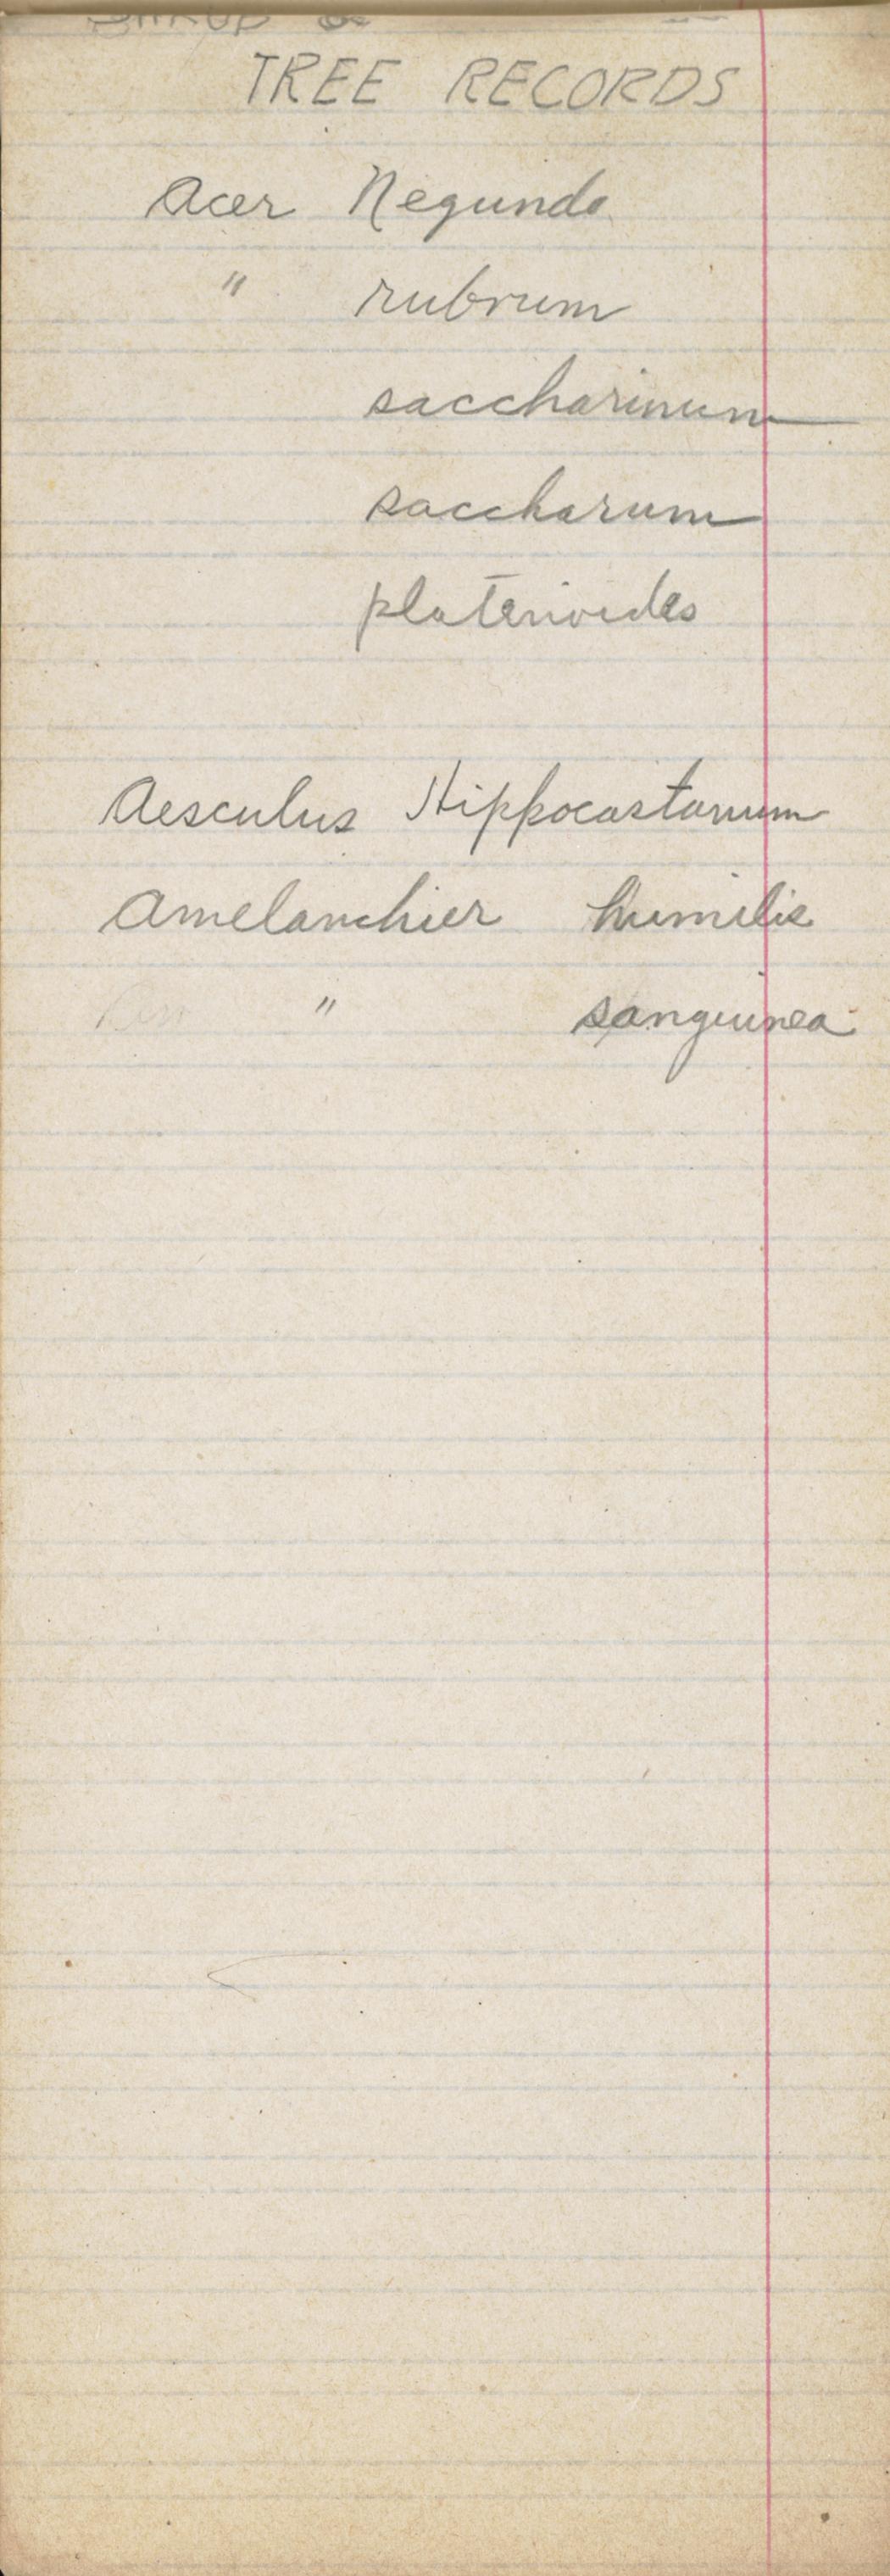 TREE RECORDS
Acer Negundo
" rubrum
saccharinum
saccharum
platenoides
Aesculus Hippocastanum
Amelanchier humilis
" sanguinea